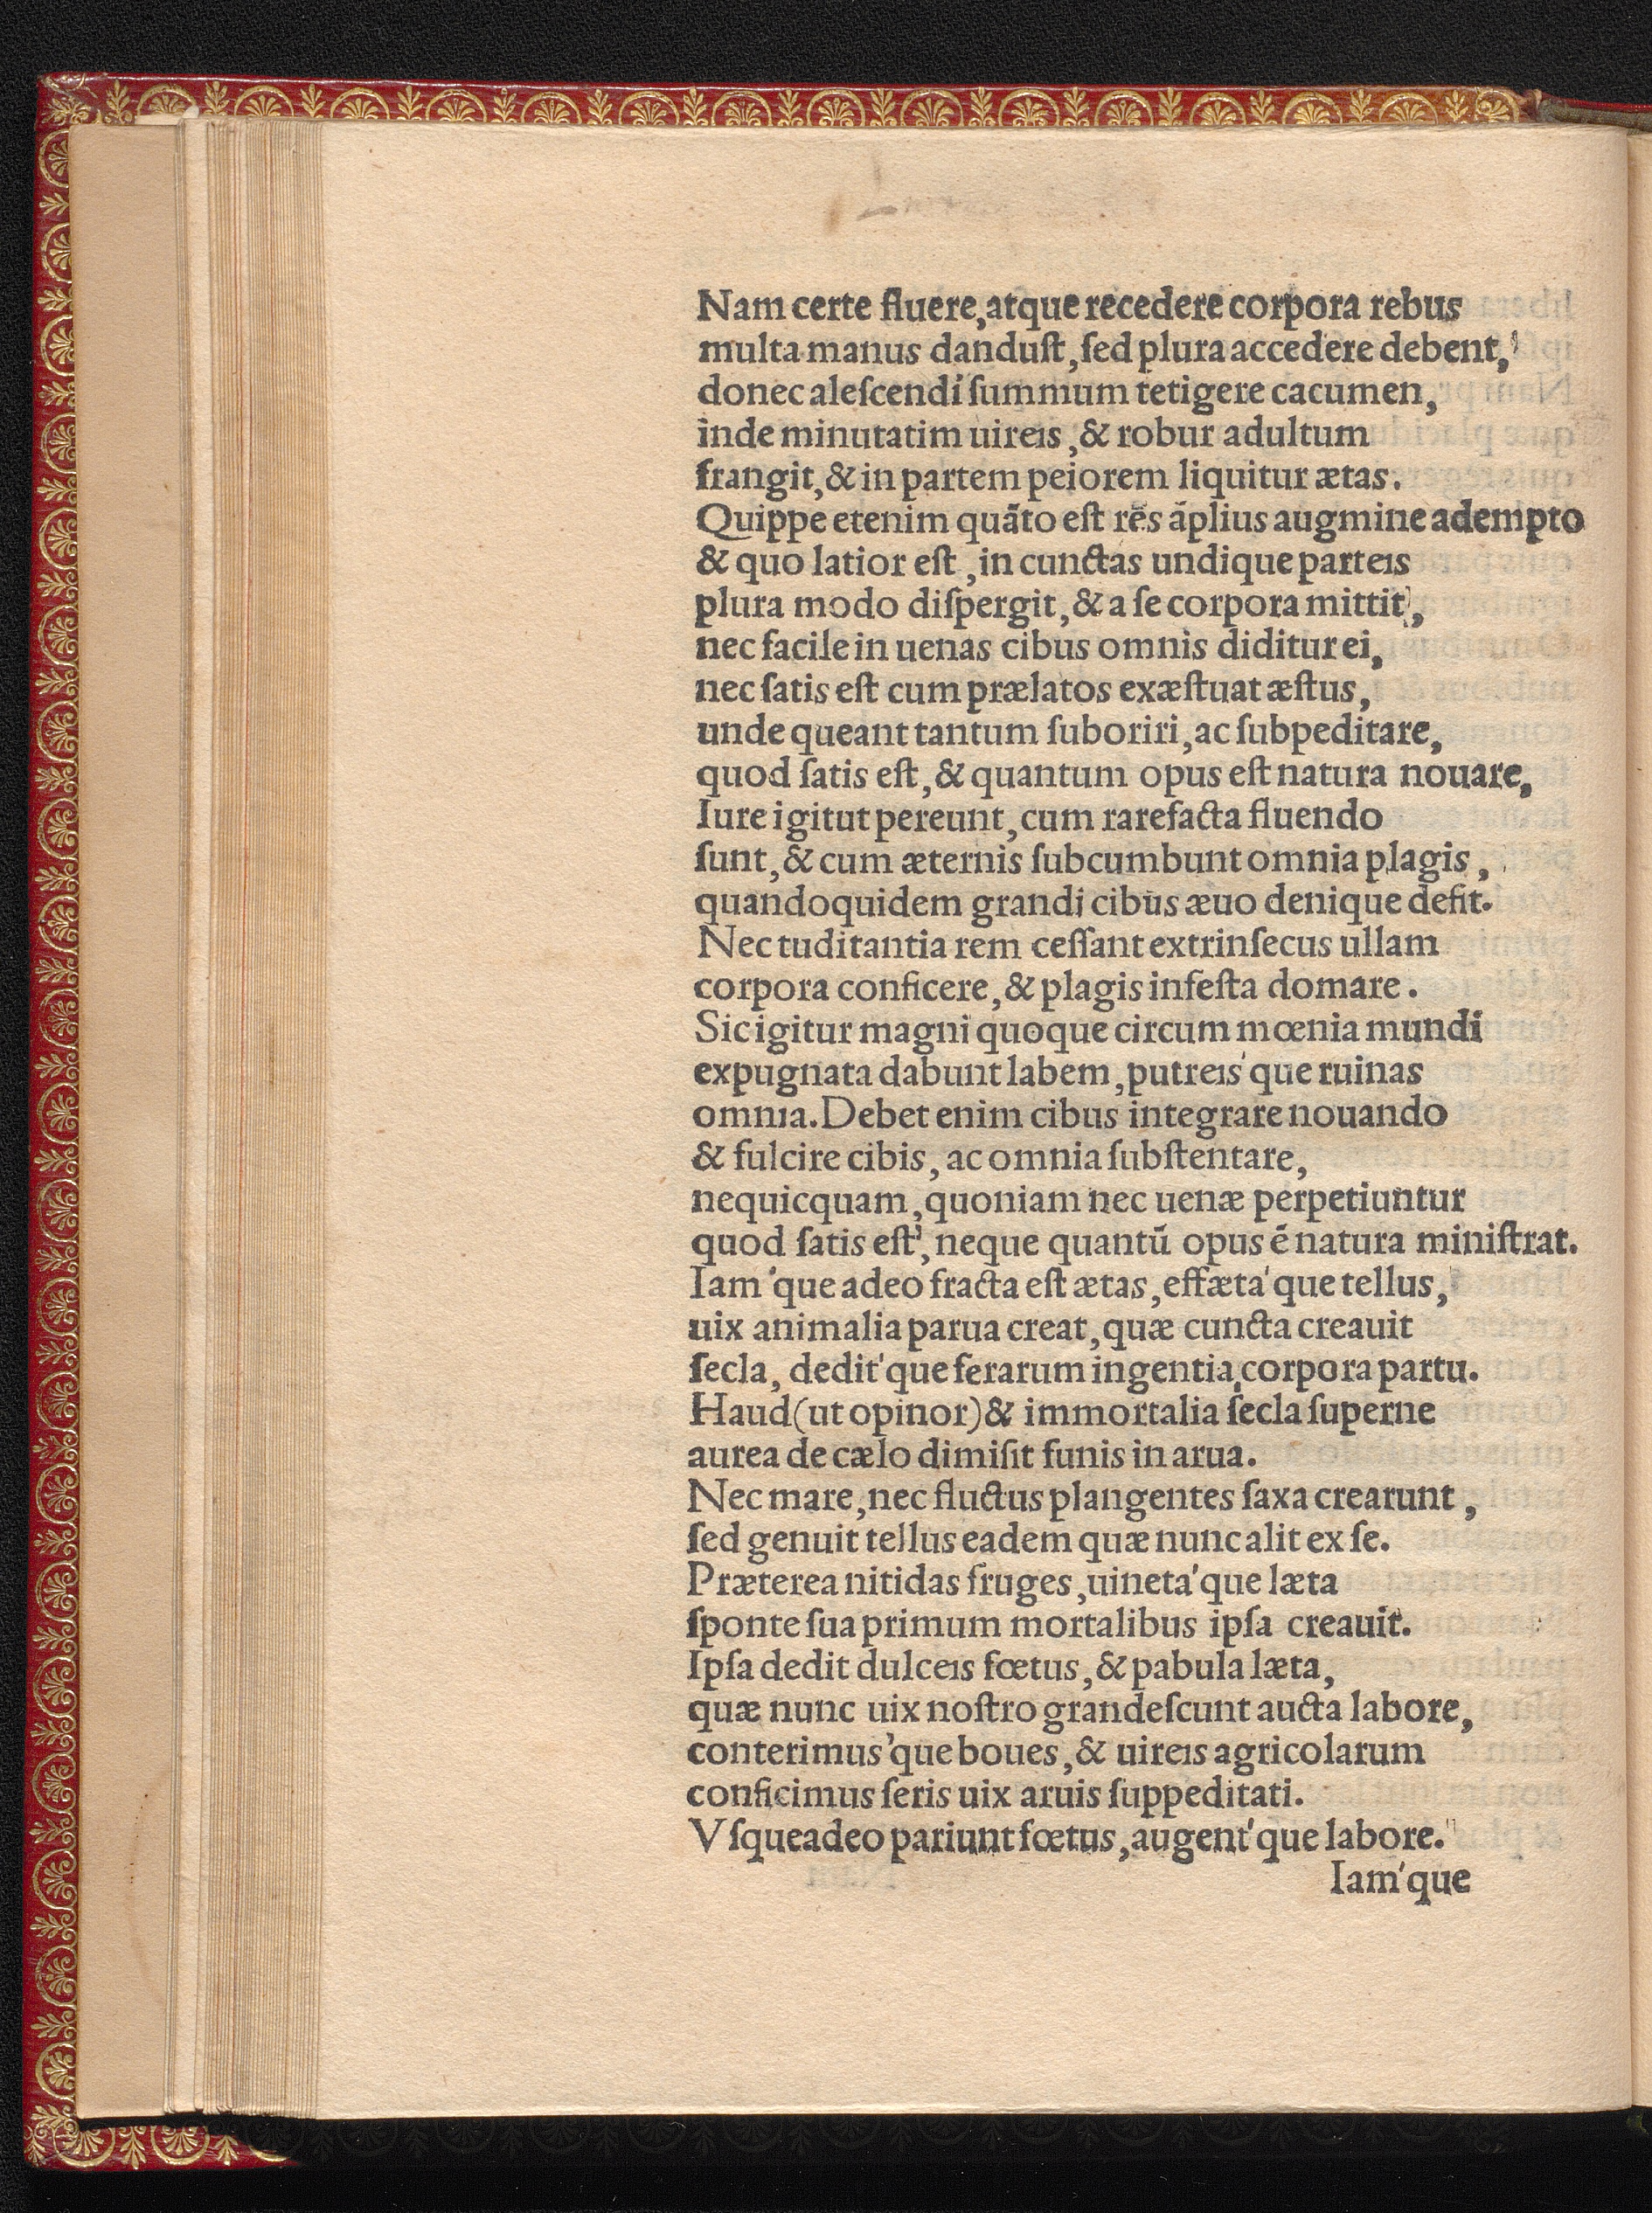 Nam certe fluere, atque recedere corpora rebus
multa manus danduſt, ſed plura accedere debent,
donec aleſcendi ſummum tetigere cacumen,
inde minutatim uireis, & robur adultum
frangit, & in partem peiorem liquitur ætas.
Quippe etenim quãto est rẽs ãplius augmine adempto
& quo latior eſt, in cunctas undique parteis
plura modo diſpergit, & a ſe corpora mittit,
nec facile in uenas cibus omnis diditur ei,
nec ſatis eſt cum prælatos exæſtuat æſtus,
unde queant tantum ſuboriri, ac ſubpeditare,
quod ſatis eſt, & quantum opus eſt natura nouare,
Iure igitut pereunt, cum rarefacta fluendo
ſunt, & cum æternis ſubcumbunt omnia plagis,
quandoquidem grandi cibus æuo denique defit.
Nec tuditantia rem ceſſant extrinſecus ullam
corpora conficere, & plagis infeſta domare.
Sic igitur magni quoque circum mœnia mundi
expugnata dabunt labem, putreis'que ruinas
omnia. Debet enim cibus integrare nouando
& fulcire cibis, ac omnia ſubſtentare,
nequicquam, quoniam nec uenæ perpetiuntur
quod ſatis eſt, neque quantũ opus ẽ natura miniſtrat.
Iam'que adeo fracta eſt ætas, effæta'que tellus,
uix animalia parua creat, quæ cuncta creauit
ſecla, dedit'que ferarum ingentia corpora partu.
Haud (ut opinor) & immortalia ſecla ſuperne
aurea de cælo dimiſit funis in arua.
Nec mare, nec fluctus plangentes ſaxa crearunt,
ſed genuit tellus eadem quæ nunc alit ex ſe.
Præterea nitidas fruges, uineta'que læta
ſponte ſua primum mortalibus ipſa creauit.
Ipſa dedit dulceis fœtus, & pabula læta,
quæ nunc uix noſtro grandeſcunt aucta labore,
conterimus'que boues, & uireis agricolarum
conficimus ſeris uix aruis ſuppeditati.
Vſqueadeo pariunt fœtus, augent'que labore.
Iam'que